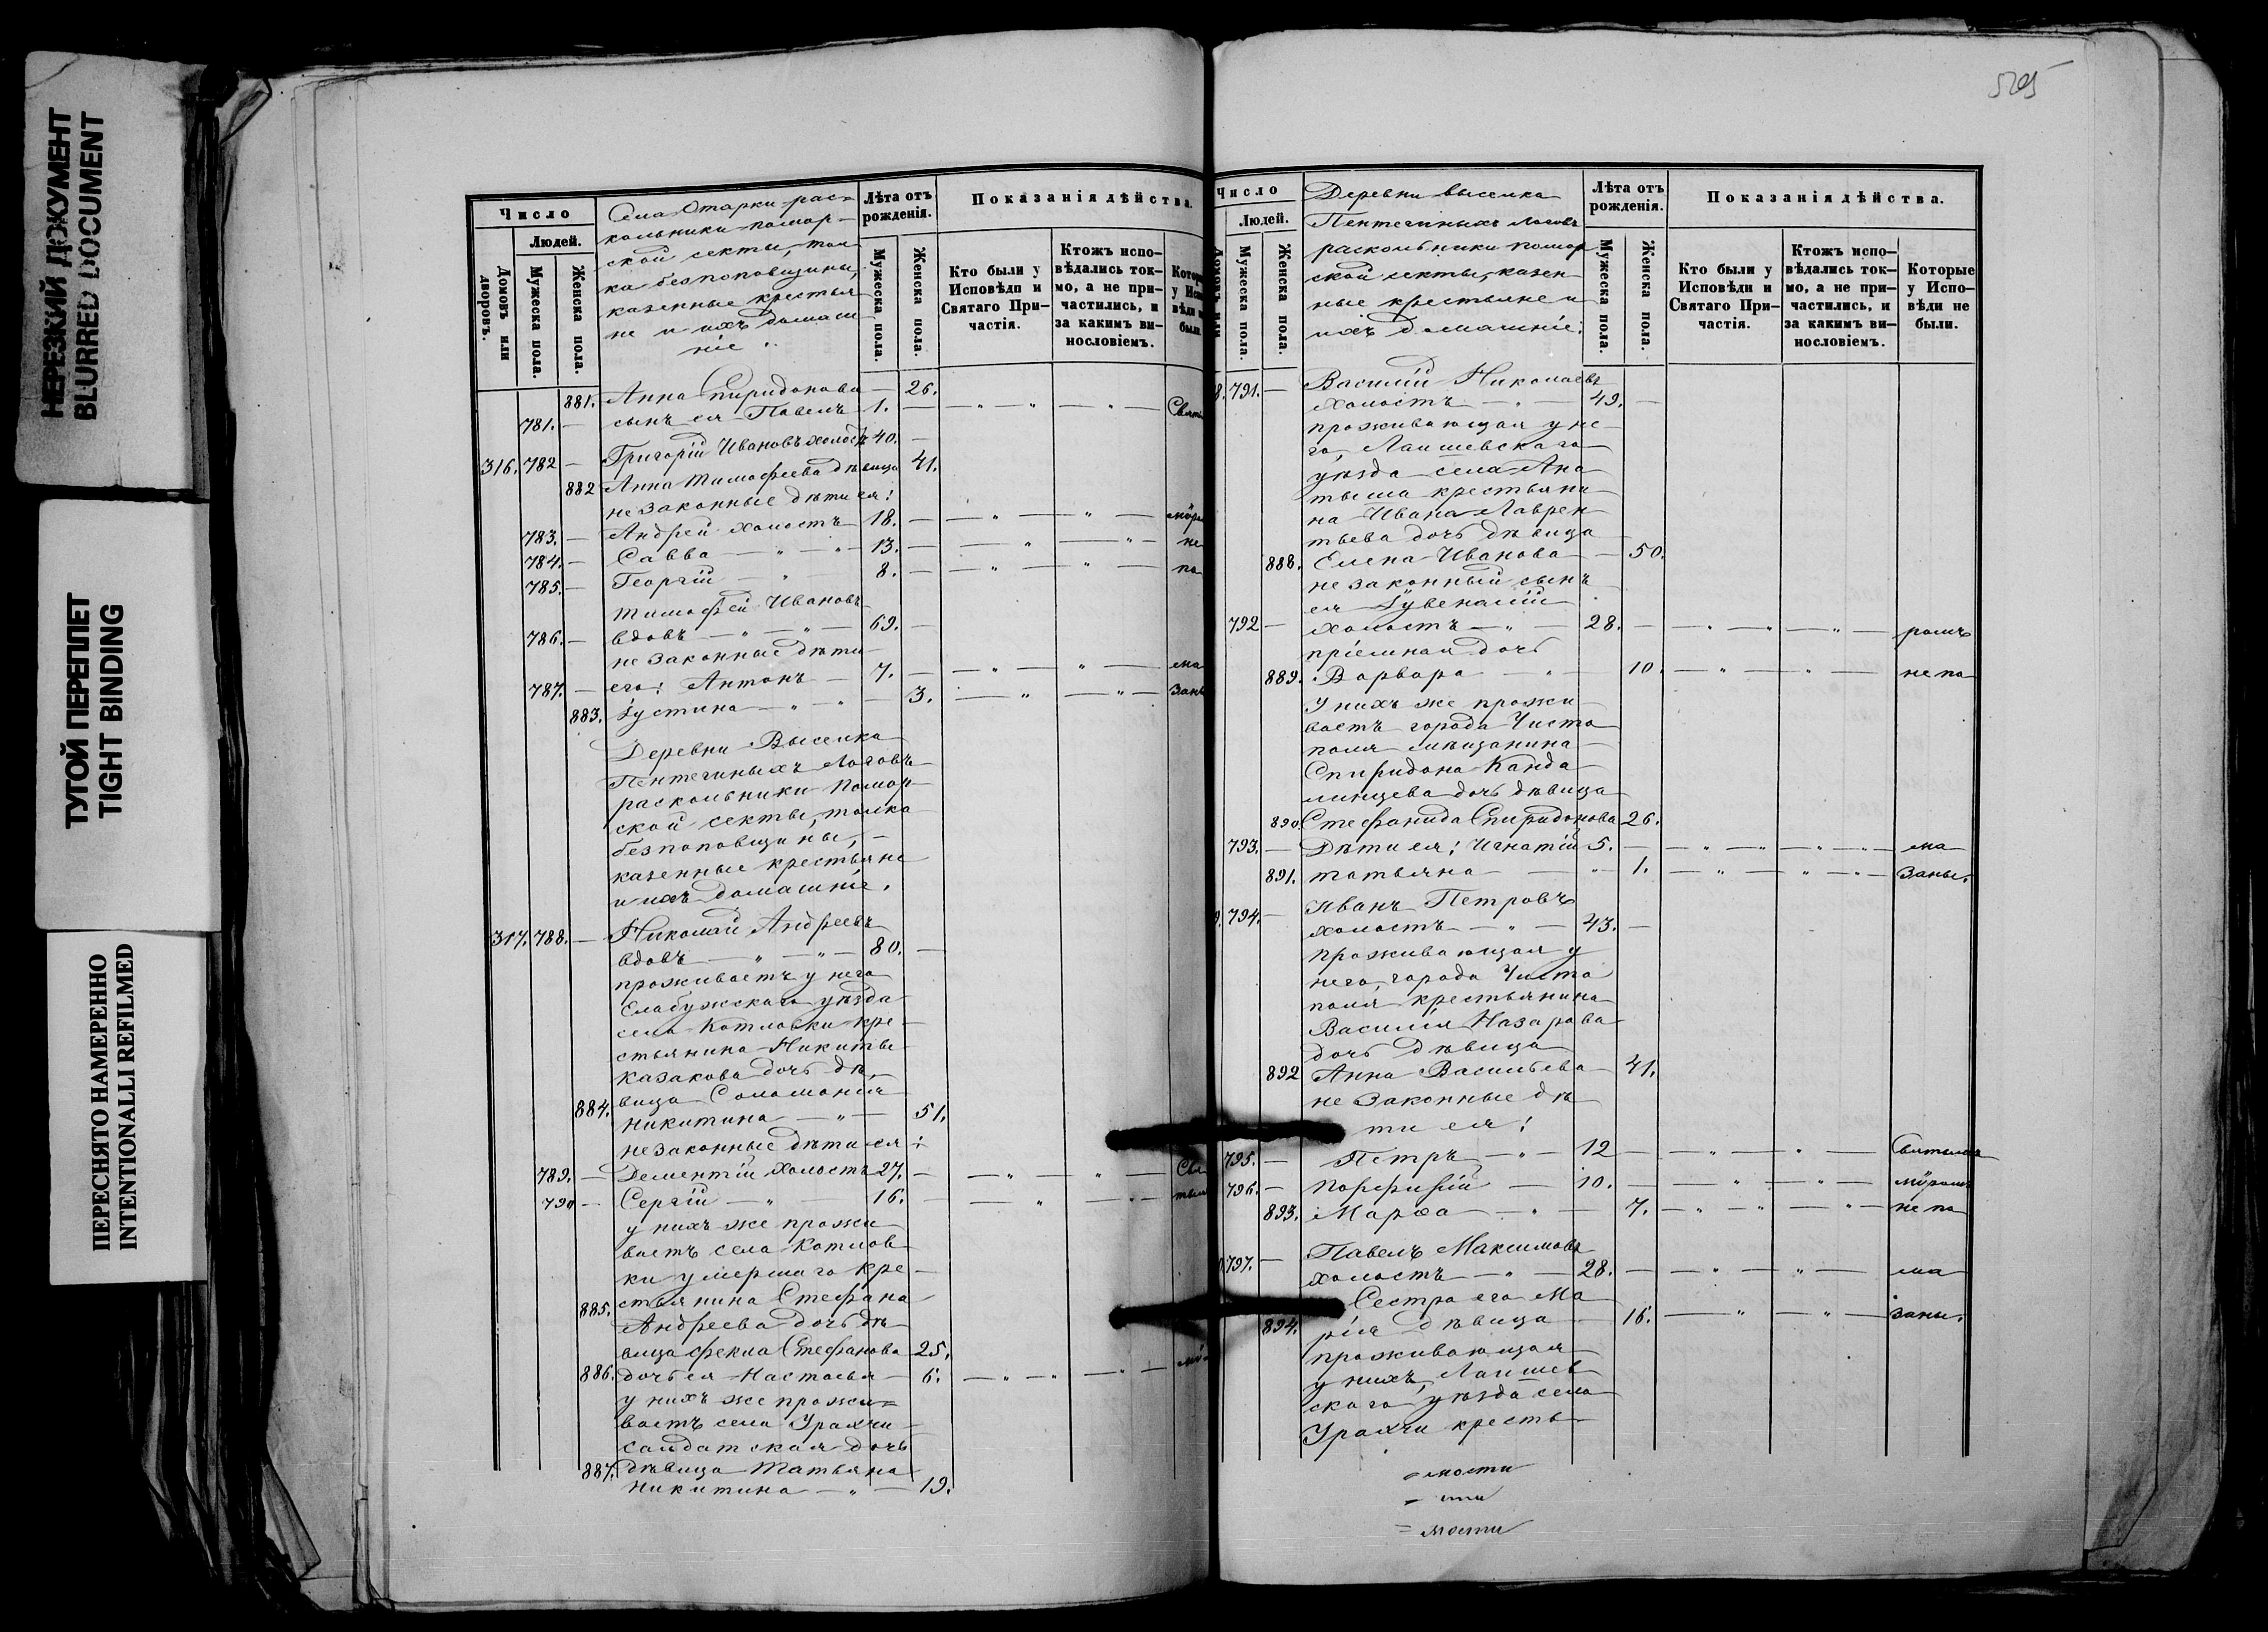 НЕРЕЗКИЙ ДОКУМЕНТ
BLURRED DOCUMENT
ТУГОЙ ПЕРЕПЛЕТ
TIGHT BINDING
ПЕРЕСНЯТО НАМЕРЕННО
INTENTIONALLI REFILMED
Число
Людей.
Домовъ или дворовъ.
Мужеска пола.
Женска пола.
Села Отарки рас-
кольники помор-
ской секты, тол
ка безпоповщины,
казенные крестья
не и ихъ домаш
ніе:
Лѣта отъ рожденія.
Мужеска пола.
Женска пола.
Показанія дѣйства.
Кто были у Исповѣди и Святаго При-частія.
Ктожъ испо-вѣдались ток-мо, а не при-частились, и за какимъ ви-нословіемъ.
881. Анна Спиридонова — 26.
781. — сынъ ея Павелъ 1. —
316. 782 — Григорій Ивановъ холостъ 40. —
882 Анна Тимофеева дѣвица 41.
незаконные дѣти ея:
783. — Андрей холостъ 18. —
784. — Савва — 13. —
785. — Георгій — 8. —
Тимофей Ивановъ
786. — вдовъ — 69. —
незаконные дѣти
787. — его: Антонъ — 7. —
883. Іустина — 3.
Деревни Выселка
Пентегиныхъ Логовъ
раскольники помор
ской секты, толка
безпоповщины, —
казенные крестьяне
и ихъ домашніе.
317. 788. — Николай Андреевъ
вдовъ — 80. —
проживаетъ у него
Елабужскаго уѣзда
села Котловки кре-
стьянина Никиты
Казакова дочь дѣ-
вица Соломонія
884. Никитина — 51.
незаконные дѣти ея:
789. — Дементій холостъ 27. —
790 — Сергій — 16. —
у нихъ же прожи
ваетъ села Котлов
ки умершаго кре-
885. стьянина Стефана
Андреева дочь дѣ-
вица Фекла Стефанова 25.
886. дочь ея Настасья — 6.
у нихъ же прожи=
ваетъ села Урахчи
салдатская дочь
887. дѣвица Татьяна
Никитина — 19.
Число
Людей.
Мужеска пола.
Женска пола.
Деревни выселка
Пентегиныхъ Логовъ
раскольники помор
ской секты, казен-
ные крестьяне и
ихъ домашніе:
Лѣта отъ рожденія.
Мужеска пола.
Женска пола.
Показанія дѣйства.
Кто были у Исповѣди и Святаго При-частія.
Ктожъ испо-вѣдались ток-мо, а не при-частились, и за какимъ ви-нословіемъ.
Которые у Испо-вѣди не были.
791. — Василій Николаевъ
холостъ — 49. —
проживающая у не-
го, Лаишевскаго
уѣзда села Ана
тыша крестьяни
на Ивана Лаврен
тьева дочь дѣвица
888. Елена Иванова — 50.
незаконный сынъ
ея Іувеналій
792 — холостъ — 28. —
пріемная дочь
889. Варвара — 10. — не по
У нихъ же прожи
ваетъ города Чисто
поля мѣщанина
Спиридона Канда
линцева дочь дѣвица
890. Стефанида Спиридонова 26.
793. — Дѣти ея: Игнатій 5. —
891. Татьяна — 1.
794. — Иванъ Петровъ
холостъ — 43. —
проживающая у
него, города Чисто
поля крестьянина
Василія Назарова
дочь дѣвица
892 Анна Васильева — 41.
незаконные дѣ
ти ея:
795. — Петръ — 12 —
796. — Порфирій — 10. —
893. Марѳа — 7. — не по
797. — Павелъ Максимовъ
холостъ — 28. —
Сестра его Ма
894. рія дѣвица — 16.
проживающая
у нихъ, Лаишев
скаго уѣзда села
Урахчи кресть